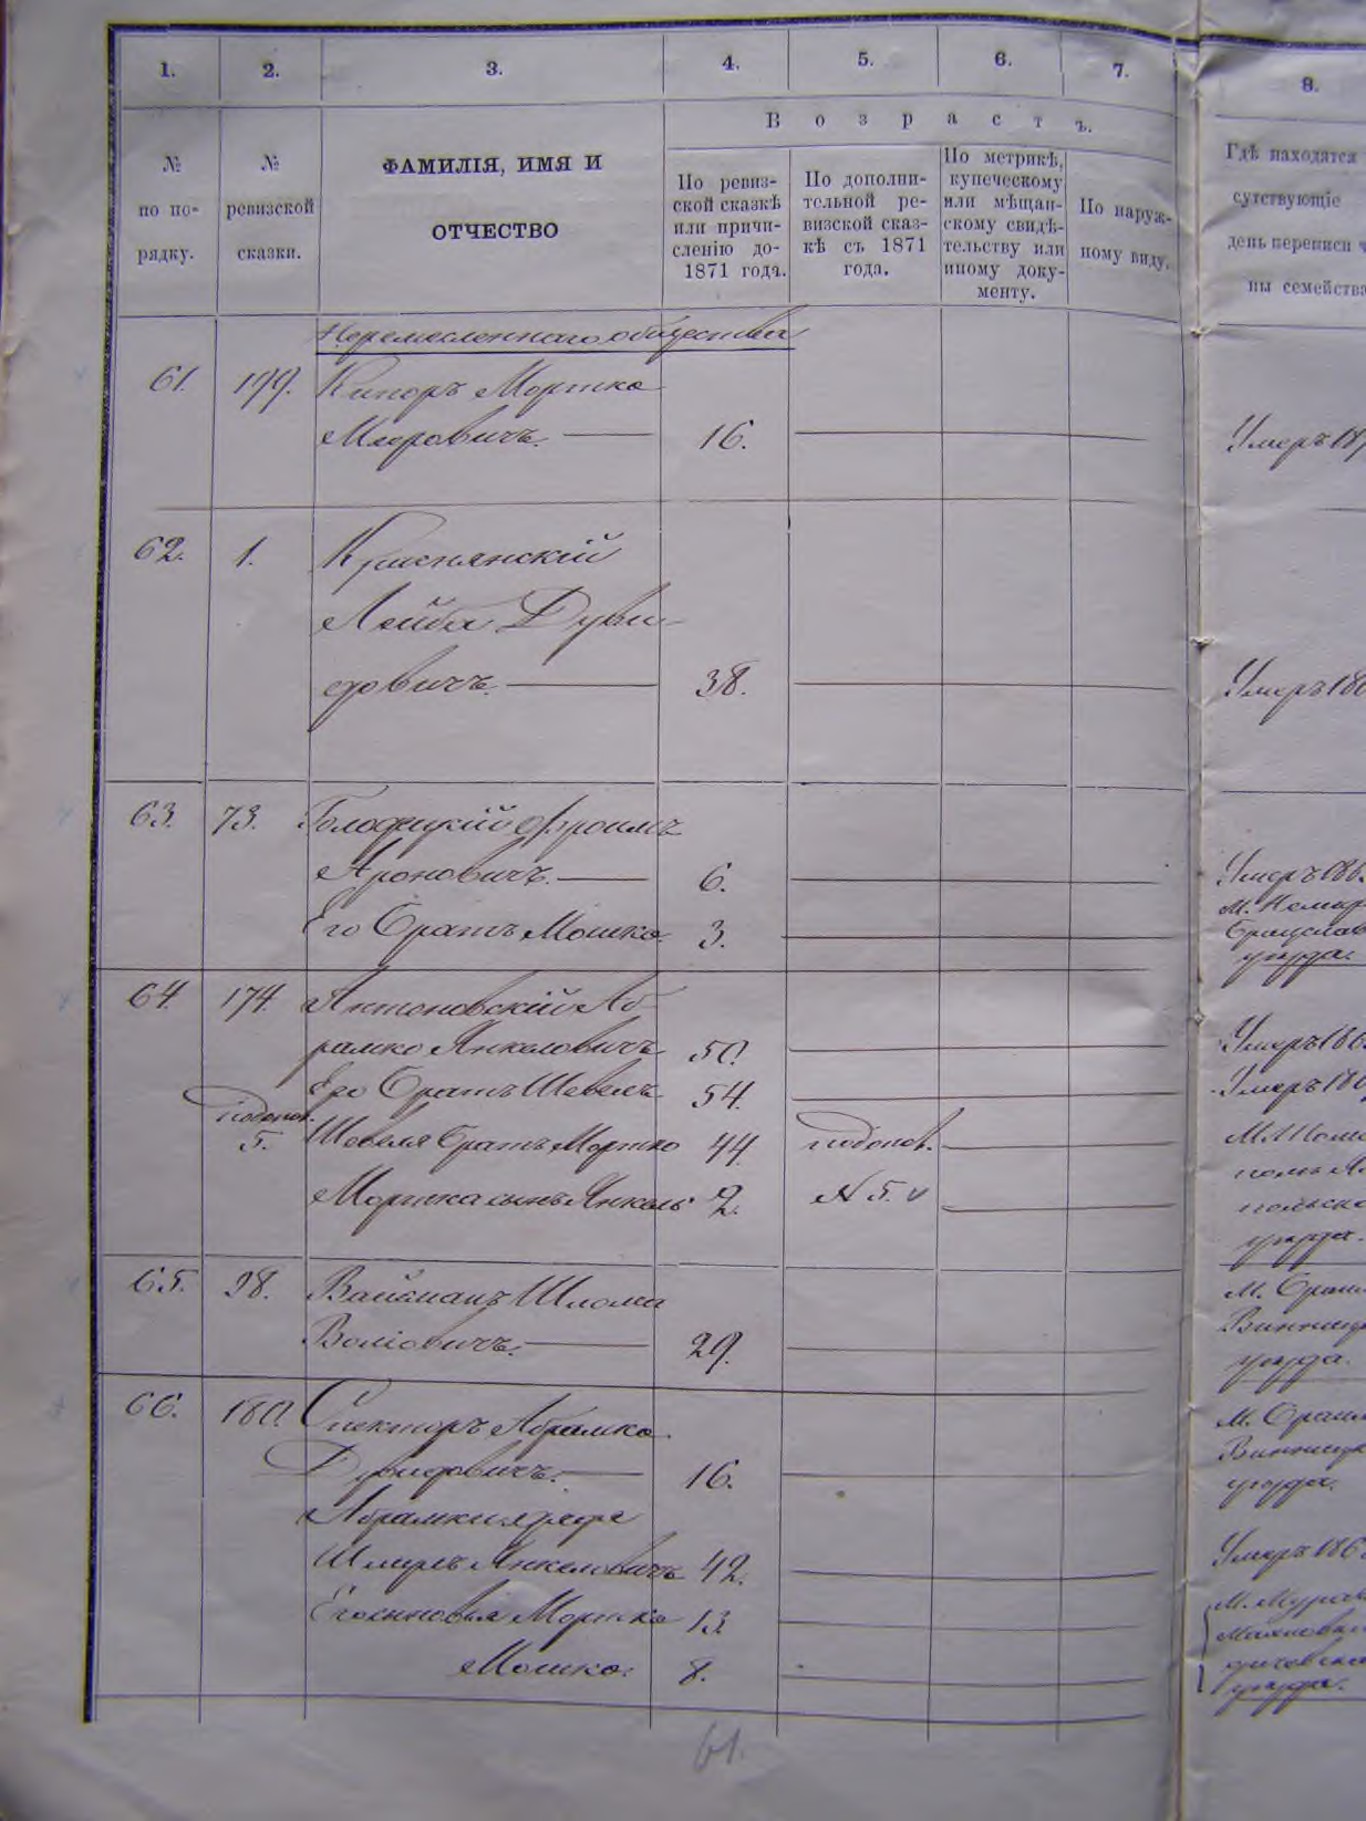 1. 2. 3. 4. 5. 6. 7. 8.
В о з р а с т ъ.
№
по по-
рядку.
№
ревизской
сказки.
ФАМИЛІЯ, ИМЯ И
ОТЧЕСТВО
По ревиз-
ской сказкѣ
или причи-
сленію до-
1871 года.
По дополни-
тельной ре-
визской сказ-
кѣ съ 1871
года.
По метрикѣ,
купеческому
или мѣщан-
скому свидѣ-
тельству или
иному доку-
менту.
По наруж-
ному виду.
Гдѣ находятся
сутствующіе
день переписи ч
ны семейства
общества
61. 199. Мортко
Мееровичъ. 16. Умеръ 187
62. 1. Краснянскій
Лейба Дуви-
довичъ. 38. Умеръ 186
63. 73. Голодецкій Фроимъ
Ароновичъ. 6. Умеръ 186
Его братъ Мошко. 3. М. Немир
Брацлав
уѣзда.
64. 174. Антоновскій Аб-
рамко Янкеловичъ 50. Умеръ 186
Его братъ Шевель 54. Умеръ 186
подопол.
5. Шевеля братъ Мортко 44. подопол.
Мортка сынъ Янкель 2. N 5.
польск
уѣзда.
65. 98. Вайсманъ Шлома М. Браил
Волковичъ. 29. Винниц
уѣзда.
66. 180. Спекторъ Абрамко М. Браил
Дувидовичъ. 16. Винниц
уѣзда.
Абрамки дядя
Шмуль Янкеловичъ 42. Умеръ 186
Его сыновья Мортко 13. М. Мурав
Мошко. 8.
уѣзда.
61.